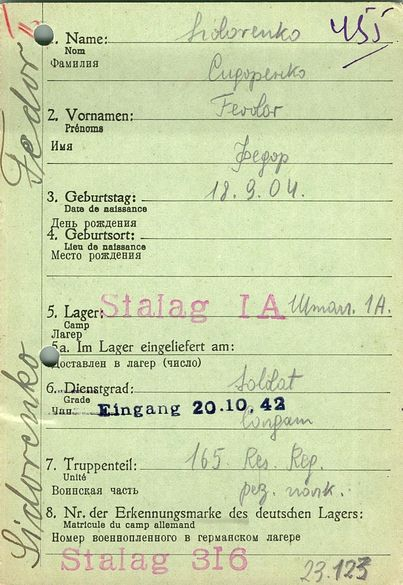 1. Name: Sidorenko
Nom
Фамилия Сидоренко
2. Vornamen: Feodor
Prénoms
Имя Федор
3. Geburtstag: 18.9.04.
Date de naissance
День рождения
4. Geburtsort:
Lieu de naissance
Место рождения
5. Lager: Stalag IA Штал. 1А.
Camp
Лагерь
5a. Im Lager eingeliefert am:
Доставлен в лагерь (число)
6. Dienstgrad: Soldat
Grade
Чин Eingang 20.10.42
Солдат
7. Truppenteil: 165. Res. Reg.
Unité
Воинская часть рез. полк.
8. Nr. der Erkennungsmarke des deutschen Lagers:
Matricule du camp allemand
Номер военнопленного в германском лагере
Stalag 316 23.123
Sidorenko Fedor